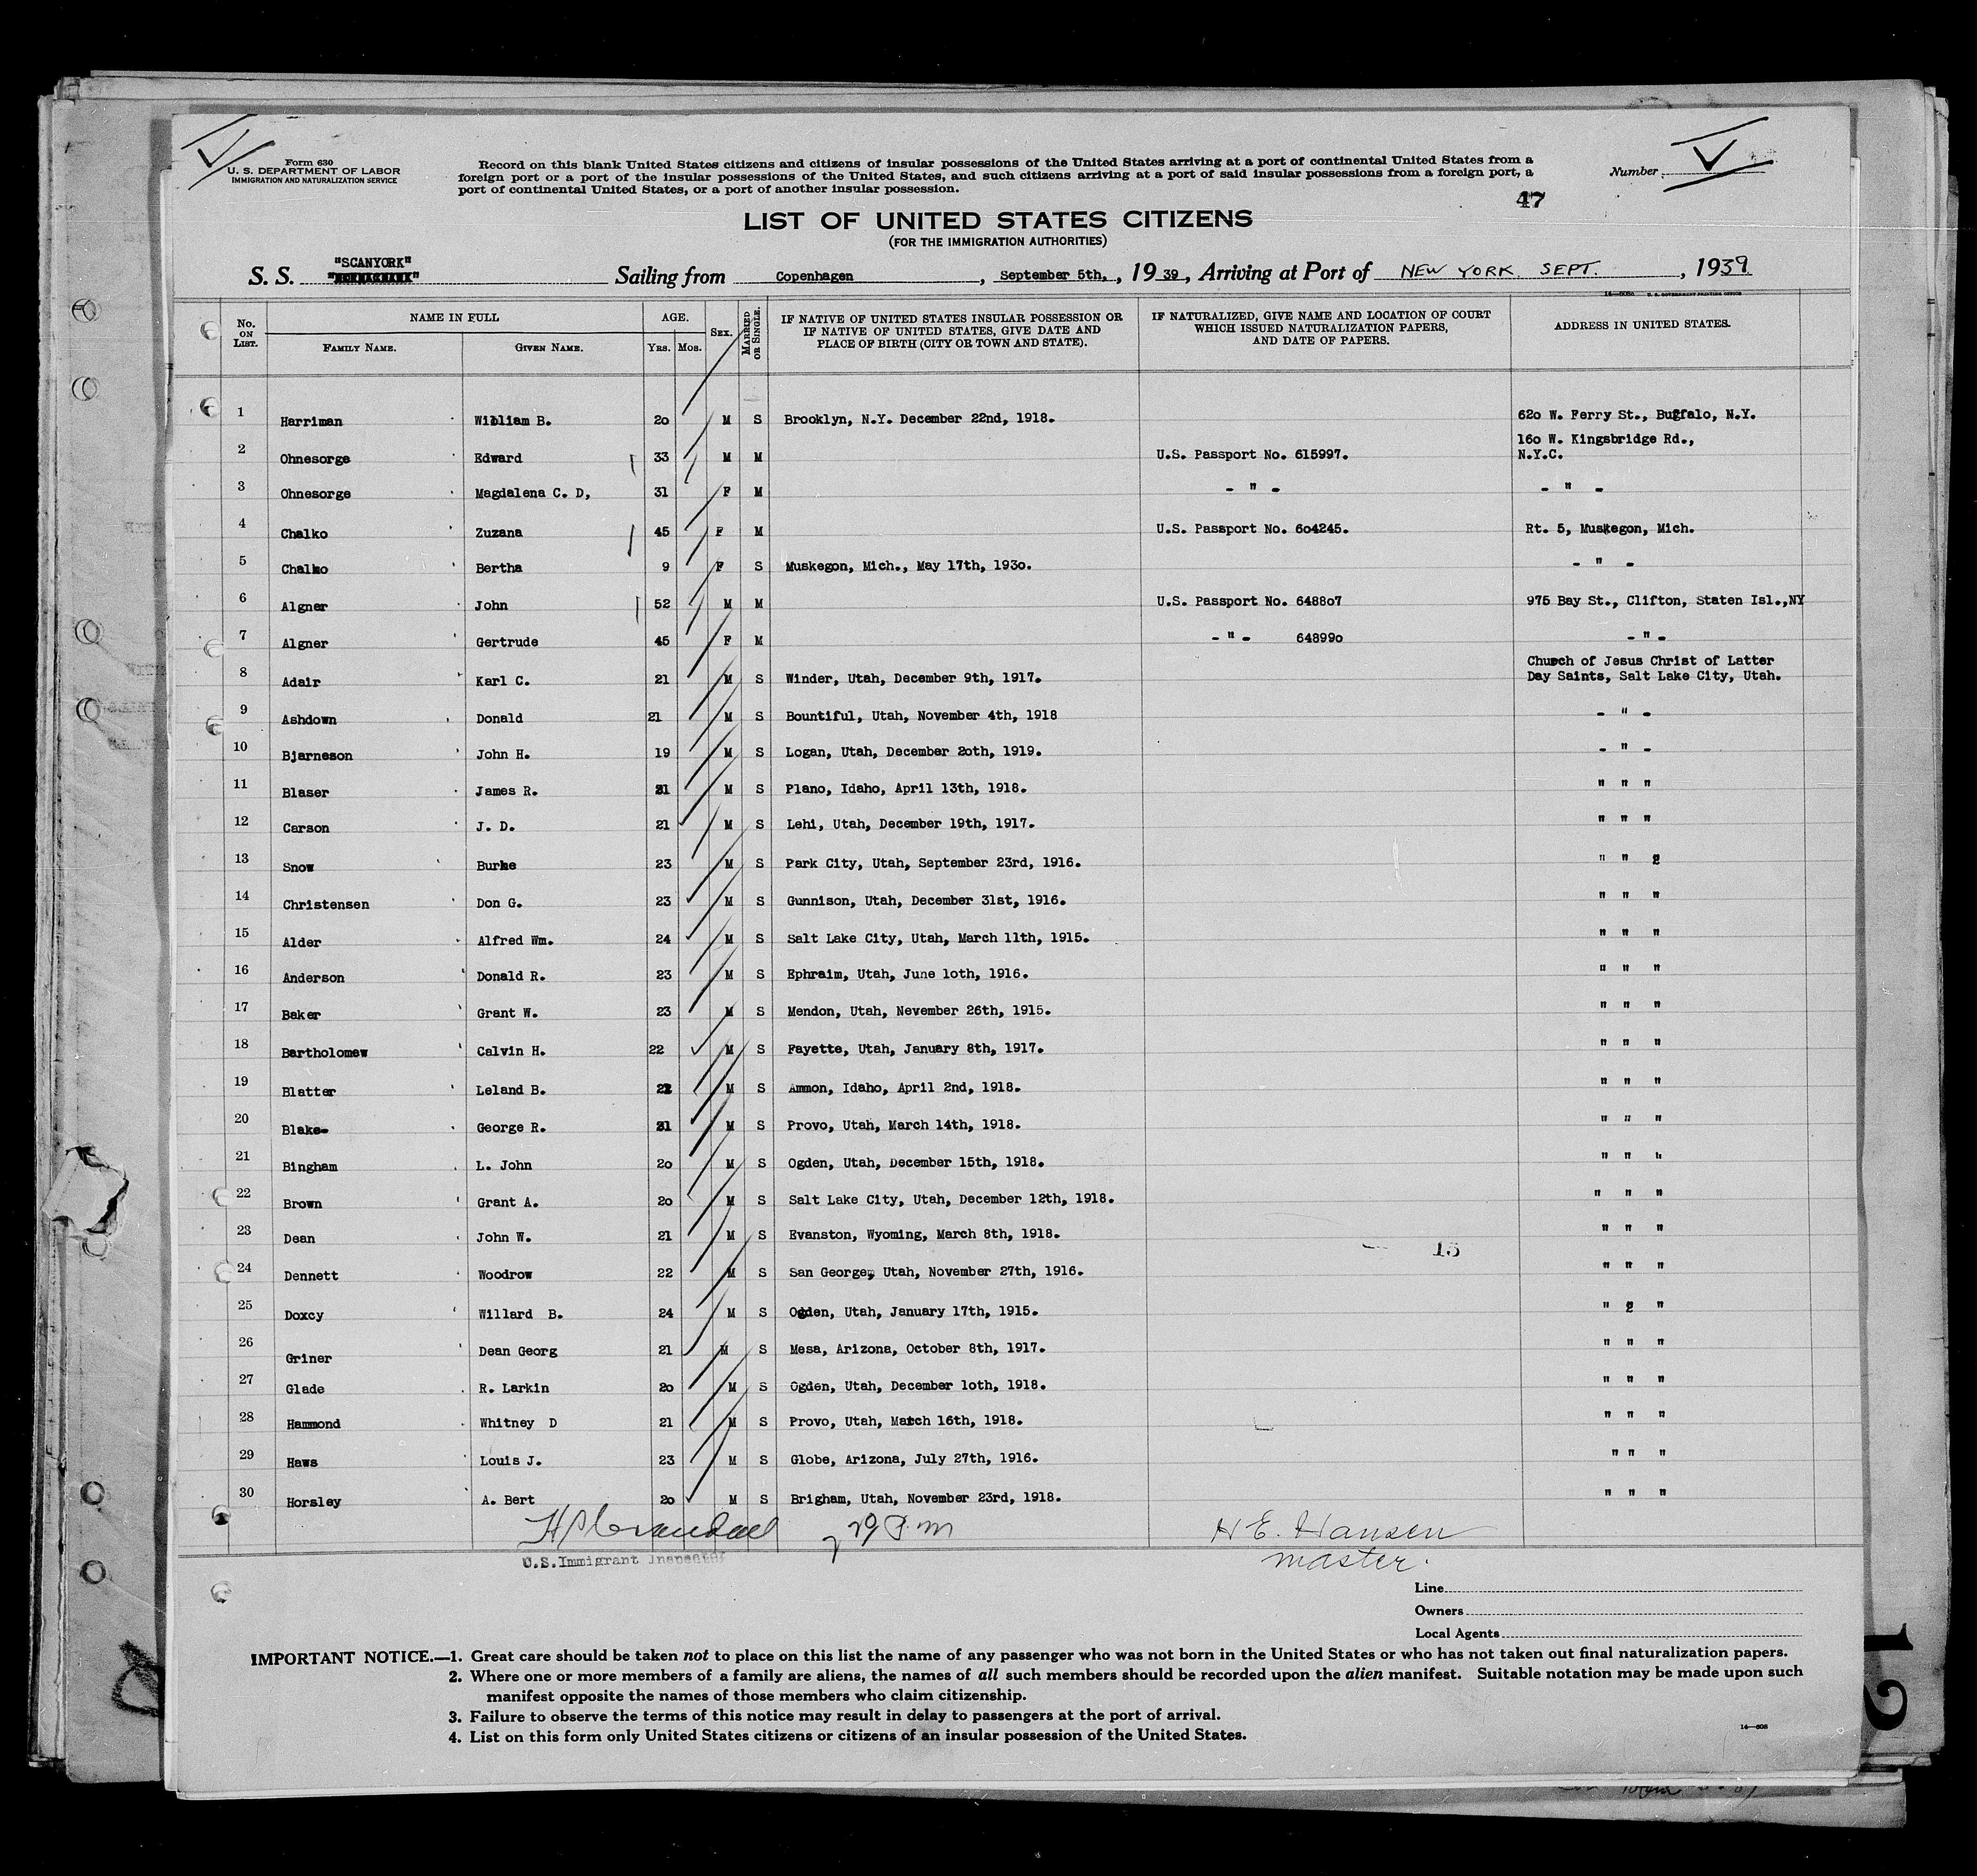 Form 630
U. S. DEPARTMENT OF LABOR
IMMIGRATION AND NATURALIZATION SERVICE
Record on this blank United States citizens and citizens of insular possessions of the United States arriving at a port of continental United States from a
foreign port or a port of the insular possessions of the United States, and such citizens arriving at a port of said insular possessions from a foreign port, a
port of continental United States, or a port of another insular possession.
Number
47
LIST OF UNITED STATES CITIZENS
(FOR THE IMMIGRATION AUTHORITIES)
"SCANYORK"
S. S. Sailing from Copenhagen, September 5th,, 1939, Arriving at Port of NEW YORK SEPT., 1939
No. ON LIST. NAME IN FULL FAMILY NAME. GIVEN NAME. AGE. YRS. MOS. SEX. MARRIED OR SINGLE. IF NATIVE OF UNITED STATES INSULAR POSSESSION OR IF NATIVE OF UNITED STATES, GIVE DATE AND PLACE OF BIRTH (CITY OR TOWN AND STATE). IF NATURALIZED, GIVE NAME AND LOCATION OF COURT WHICH ISSUED NATURALIZATION PAPERS, AND DATE OF PAPERS. ADDRESS IN UNITED STATES.
1 Harriman William B. 20 M S Brooklyn, N.Y. December 22nd, 1918. 620 W. Ferry St., Buffalo, N.Y.
2 Ohnesorge Edward 33 M M U.S. Passport No. 615997. 160 W. Kingsbridge Rd., N.Y.C.
3 Ohnesorge Magdalena C. D, 31 F M - " - - " -
4 Chalko Zuzana 45 F M U.S. Passport No. 604245. Rt. 5, Muskegon, Mich.
5 Chalko Bertha 9 F S Muskegon, Mich., May 17th, 1930. - " -
6 Algner John 52 M M U.S. Passport No. 648807 975 Bay St., Clifton, Staten Isl.,NY
7 Algner Gertrude 45 F M - " - 648990 - " -
8 Adair Karl C. 21 M S Winder, Utah, December 9th, 1917. Church of Jesus Christ of Latter Day Saints, Salt Lake City, Utah.
9 Ashdown Donald 21 M S Bountiful, Utah, November 4th, 1918 - " -
10 Bjarneson John H. 19 M S Logan, Utah, December 20th, 1919. - " -
11 Blaser James R. 21 M S Plano, Idaho, April 13th, 1918. " " "
12 Carson J. D. 21 M S Lehi, Utah, December 19th, 1917. " " "
13 Snow Burke 23 M S Park City, Utah, September 23rd, 1916. " " 2
14 Christensen Don G. 23 M S Gunnison, Utah, December 31st, 1916. " " "
15 Alder Alfred Wm. 24 M S Salt Lake City, Utah, March 11th, 1915. " " "
16 Anderson Donald R. 23 M S Ephraim, Utah, June 10th, 1916. " " "
17 Baker Grant W. 23 M S Mendon, Utah, Nevember 26th, 1915. " " "
18 Bartholomew Calvin H. 22 M S Fayette, Utah, January 8th, 1917. " " "
19 Blatter Leland B. M S Ammon, Idaho, April 2nd, 1918. " " "
20 Blake George R. 21 M S Provo, Utah, March 14th, 1918. " " "
21 Bingham L. John 20 M S Ogden, Utah, December 15th, 1918. " " "
22 Brown Grant A. 20 M S Salt Lake City, Utah, December 12th, 1918. " " "
23 Dean John W. 21 M S Evanston, Wyoming, March 8th, 1918. " " "
15
24 Dennett Woodrow 22 M S San George, Utah, November 27th, 1916. " " "
25 Doxcy Willard B. 24 M S Ogden, Utah, January 17th, 1915. " 2 "
26 Griner Dean Georg 21 M S Mesa, Arizona, October 8th, 1917. " " "
27 Glade R. Larkin 20 M S Ogden, Utah, December 10th, 1918. " " "
28 Hammond Whitney D 21 M S Provo, Utah, March 16th, 1918. " " "
29 Haws Louis J. 23 M S Globe, Arizona, July 27th, 1916. " " "
30 Horsley A. Bert 20 M S Brigham, Utah, November 23rd, 1918. " " "
H E. Hansen
master.
U.S.Immigrant Inspector
Line
Owners
Local Agents
IMPORTANT NOTICE.—1. Great care should be taken not to place on this list the name of any passenger who was not born in the United States or who has not taken out final naturalization papers.
2. Where one or more members of a family are aliens, the names of all such members should be recorded upon the alien manifest. Suitable notation may be made upon such
manifest opposite the names of those members who claim citizenship.
3. Failure to observe the terms of this notice may result in delay to passengers at the port of arrival.
4. List on this form only United States citizens or citizens of an insular possession of the United States.
14—608
12